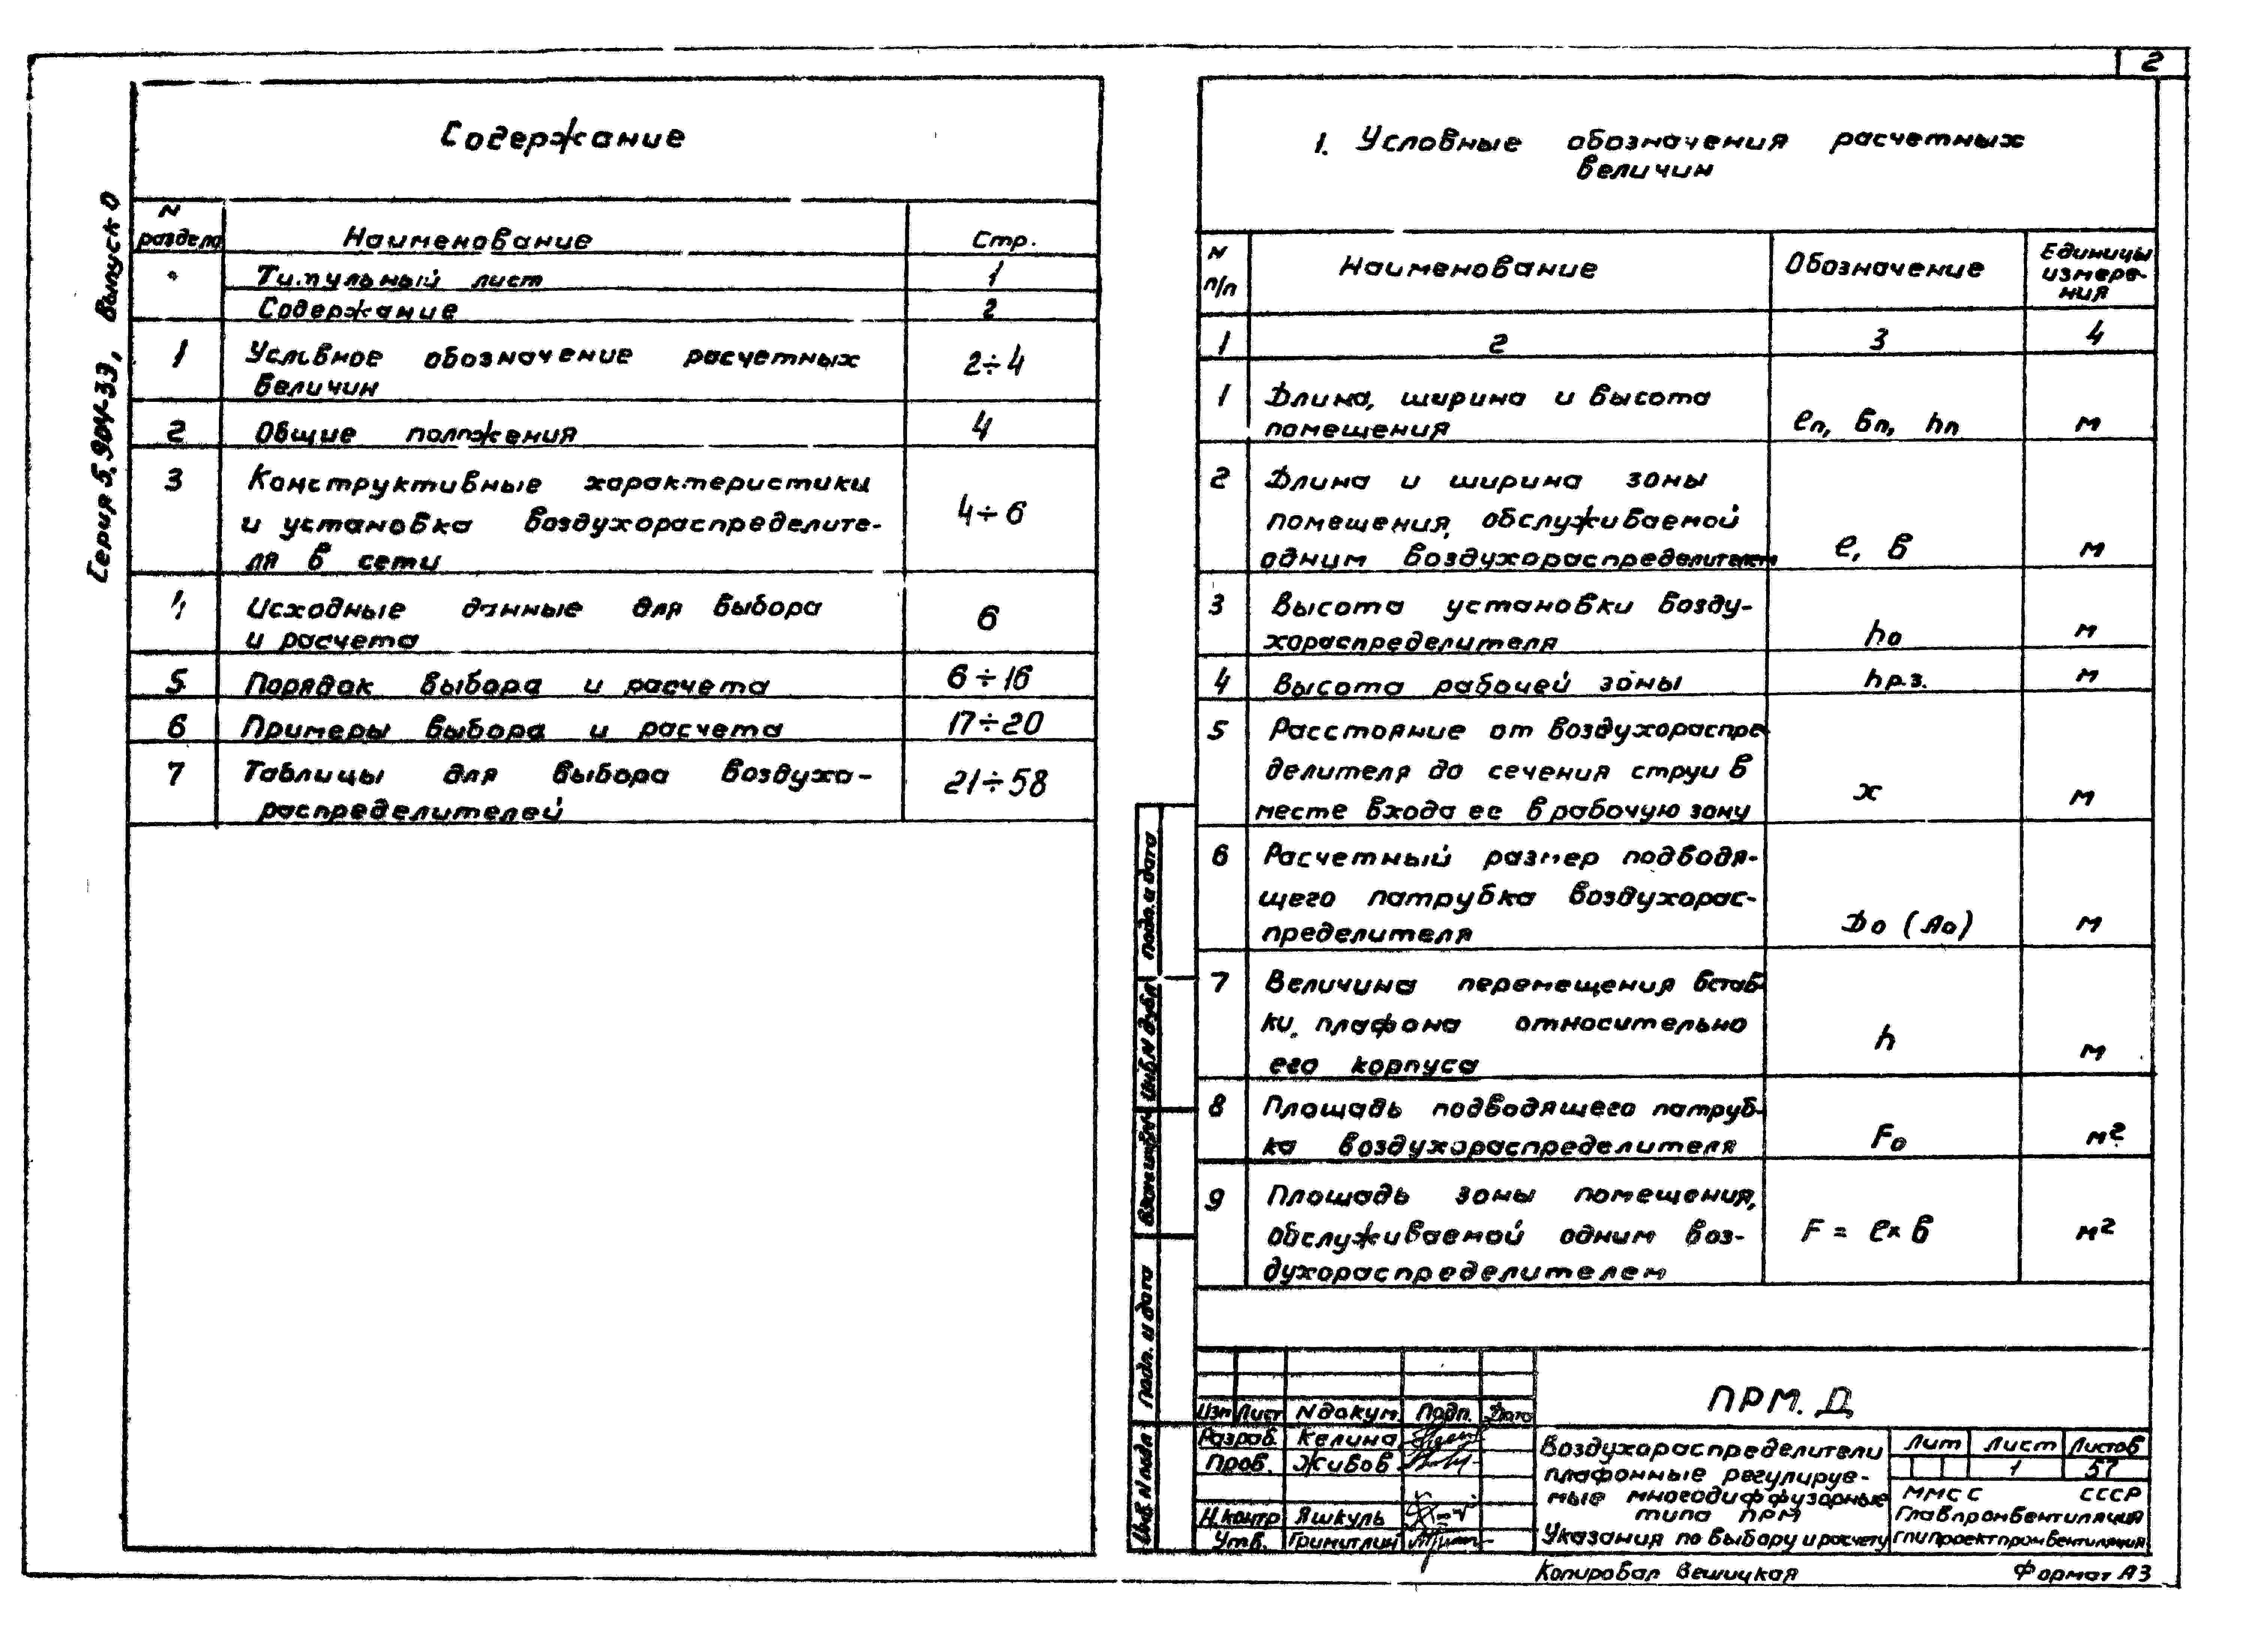 2
Серия 5.904-33, Выпуск 0
Содержание
N раздела
Наименование
Стр.
Титульный лист
1
Содержание
2
1
Условное обозначение расчетных
величин
2÷4
2
Общие положения
4
3
Конструктивные характеристики
и установка воздухораспределите-
ля в сети
4÷6
4
Исходные данные для выбора
и расчета
6
5
Порядок выбора и расчета
6÷16
6
Примеры выбора и расчета
17÷20
7
Таблицы для выбора воздухо-
распределителей
21÷58
1. Условные обозначения расчетных
величин
N п/п
Наименование
Обозначение
Единицы
измере-
ния
1
2
3
4
1
Длина, ширина и высота
помещения
ℓп, вп, hп
м
2
Длина и ширина зоны
помещения, обслуживаемой
одним воздухораспределителем
ℓ, в
м
3
Высота установки возду-
хораспределителя
hо
м
4
Высота рабочей зоны
hр.з.
м
5
Расстояние от воздухораспре-
делителя до сечения струи в
месте входа ее в рабочую зону
x
м
6
Расчетный размер подводя-
щего патрубка воздухорас-
пределителя
Dо (Aо)
м
7
Величина перемещения встав-
ки плафона относительно
его корпуса
h
м
8
Площадь подводящего патруб-
ка воздухораспределителя
Fо
м²
9
Площадь зоны помещения,
обслуживаемой одним воз-
духораспределителем
F = ℓ×в
м²
Подп. и дата
Инв. N дубл
Взам инв. N
Подп. и дата
Инв. N подл
Изм Лист N докум. Подп. Дата
Разраб. Келина
Пров. Живов
Н. контр Яшкуль
Утв. Гримитлин
ПРМ. Д
Воздухораспределители
плафонные регулируе-
мые многодиффузорные
типа ПРМ
Указания по выбору и расчету
Лит Лист Листов
1 57
ММСС СССР
Главпромвентиляция
ГПИ Проектпромвентиляция
Копировал Вешицкая
Формат А3